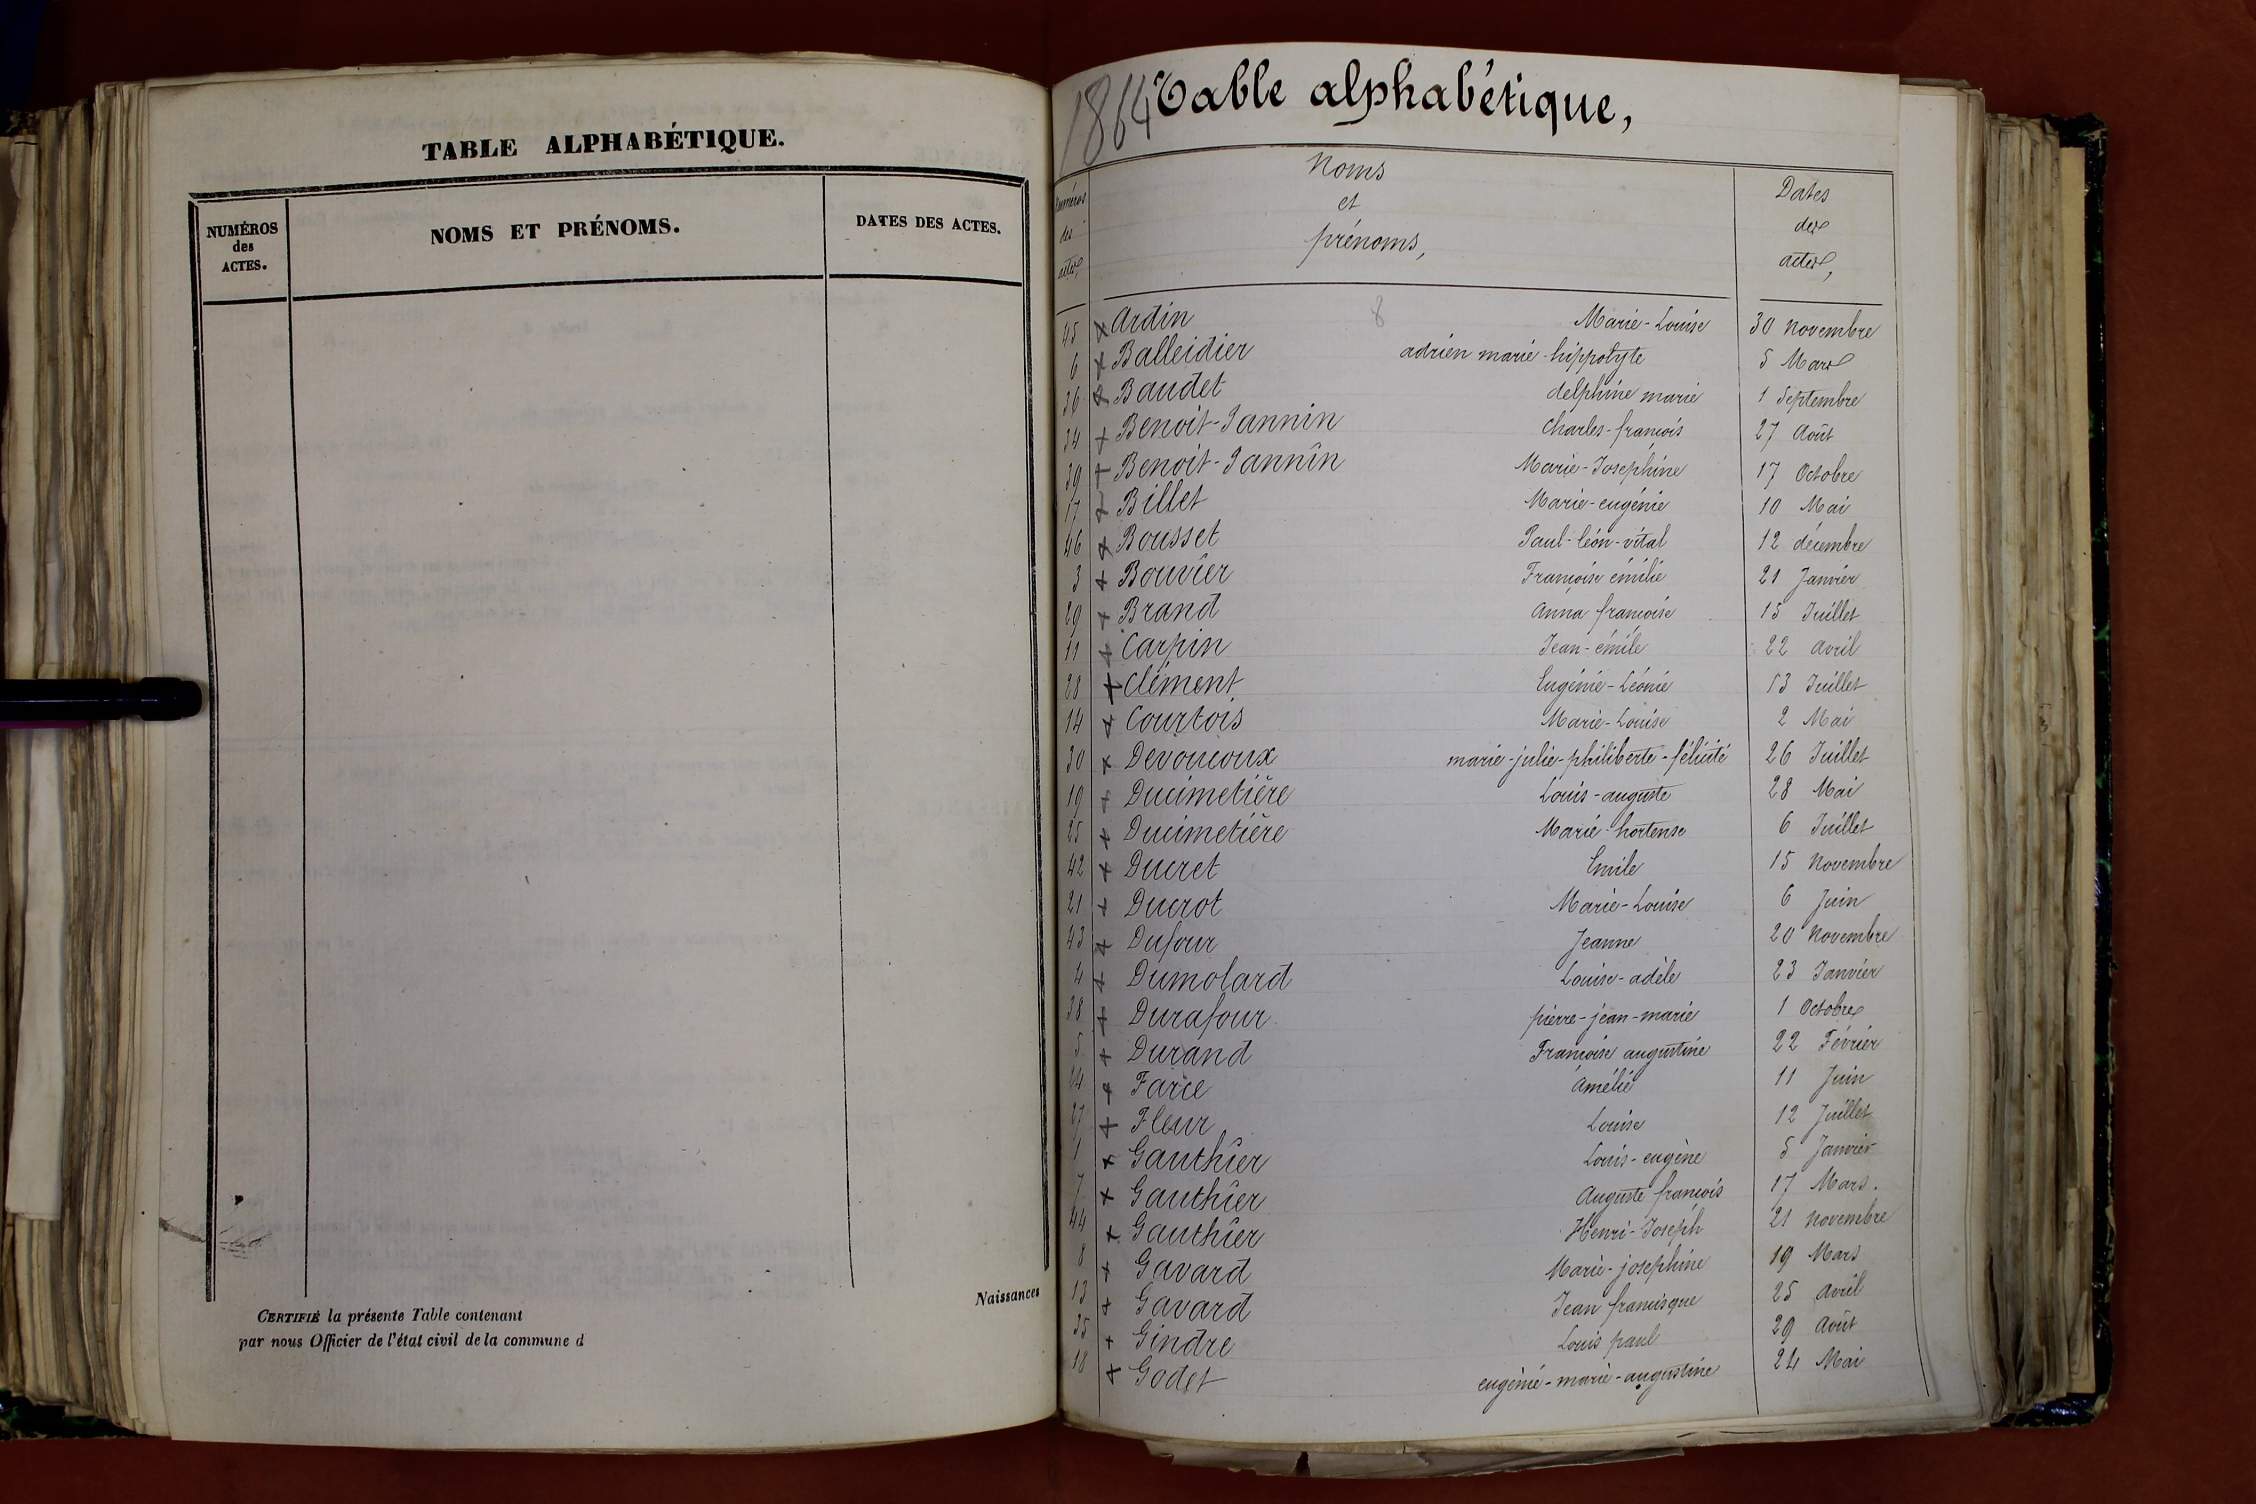 TABLE ALPHABÉTIQUE.
NUMÉROS des ACTES. NOMS ET PRÉNOMS. DATES DES ACTES.
Naissances
CERTIFIÉ la présente Table contenant
par nous Officier de l'état civil de la commune d
1864 Table alphabétique,
Numéros des actes Noms et prénoms, Dates des actes,
8
45 x Ardin Marie-Louise 30 novembre
6 x Balleidier adrien marie hippolyte 5 Mars
36 x Baudet delphine marie 1 Septembre
34 x Benoit-Jannin charles-francois 27 Août
39 x Benoit-Jannin Marie-Josephine 17 Octobre
17 x Billet Marie-eugénie 10 Mai
46 x Bousset Paul-léon-vital 12 décembre
3 x Bouvier Francoise émilie 21 Janvier
29 x Brand Anna francoise 15 Juillet
11 x Carpin Jean-émile 22 avril
28 x Clément Eugénie-Léonie 13 Juillet
14 x Courtois Marie-Louise 2 Mai
30 x Devoucoux marie-julie-philiberte-félicité 26 Juillet
19 x Ducimetière Louis-auguste 28 Mai
25 x Ducimetière Marie-hortense 6 Juillet
42 x Ducret Emile 15 novembre
21 x Ducrot Marie-Louise 6 Juin
43 x Dufour Jeanne 20 novembre
4 x Dumolard Louise-adèle 23 Janvier
38 x Durafour pierre-jean-marie 1 Octobre
5 x Durand Francoise augustine 22 Février
24 x Farce Amélie 11 Juin
27 x Fleur Louise 12 Juillet
1 x Gauthier Louis-eugène 5 Janvier
7 x Gauthier Auguste francois 17 Mars.
44 x Gauthier Henri-Joseph 21 novembre
8 x Gavard Marie-josephine 19 Mars
13 x Gavard Jean francisque 25 avril
35 x Gindre Louis paul 29 Août
18 x Godet eugénie-marie-augustine 24 Mai